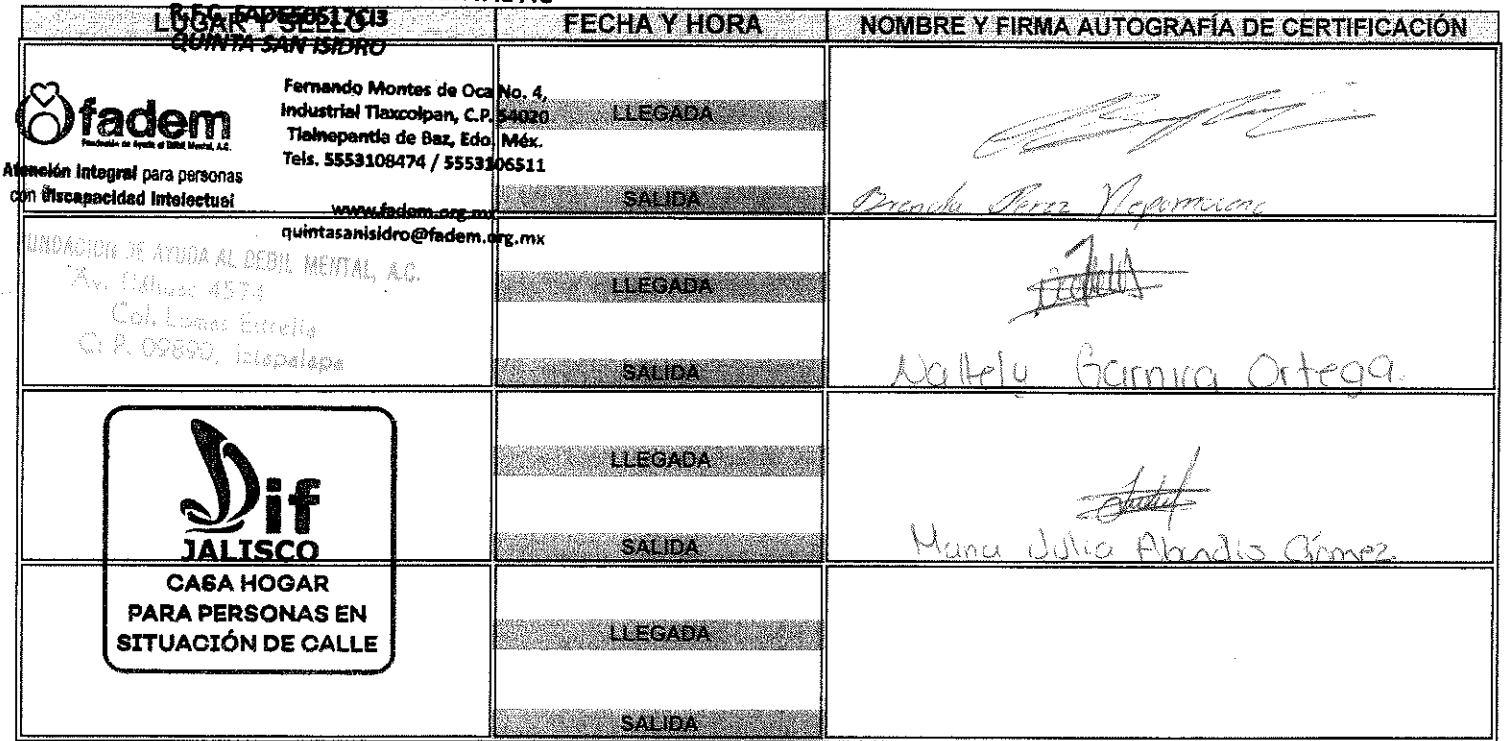 R.F.C. FAD650517CI3
LUGAR Y SELLO
FECHA Y HORA
NOMBRE Y FIRMA AUTOGRAFÍA DE CERTIFICACIÓN
QUINTA SAN ISIDRO
fadem
Fundación de Ayuda al Débil Mental, A.C.
Atención integral para personas
con discapacidad intelectual
Fernando Montes de Oca No. 4,
Industrial Tlaxcolpan, C.P. 54020
Tlalnepantla de Baz, Edo. Méx.
Tels. 5553108474 / 5553106511
www.fadem.org.mx
quintasanisidro@fadem.org.mx
LLEGADA
SALIDA
Brenda Perez Nepomuceno
FUNDACION DE AYUDA AL DEBIL MENTAL, A.C.
Av. 4574
Col. Lomas Estrella
C. P. 09890, Iztapalapa
LLEGADA
SALIDA
Garnica Ortega.
Dif
JALISCO
CASA HOGAR
PARA PERSONAS EN
SITUACIÓN DE CALLE
LLEGADA
SALIDA
Julia Gómez
LLEGADA
SALIDA